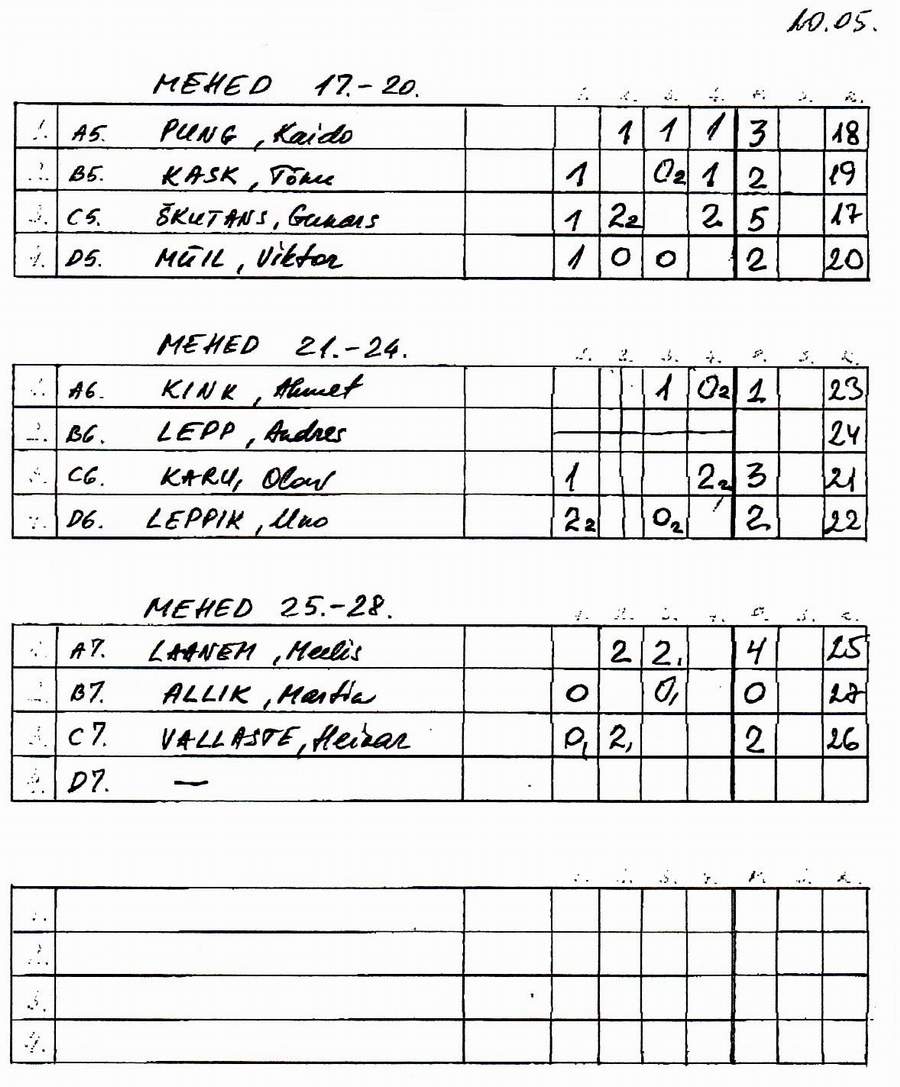 20.05.
MEHED 17.-20.
1. 2. 3. 4. P. S. K.
1. A5. PUNG, Kaido 1 1 1 3 18
2. B5. KASK, Tõnu 1 0₂ 1 2 19
3. C5. ŠKUTANS, Gunars 1 2₂ 2 5 17
4. D5. MÜIL, Viktor 1 0 0 2 20
MEHED 21.-24.
1. 2. 3. 4. P. S. K.
1. A6. KINK, Ahmet 1 0₂ 1 23
2. B6. LEPP, Andres 24
3. C6. KARU, Olav 1 2₂ 3 21
4. D6. LEPPIK, Uno 2₂ 0₂ 2 22
MEHED 25.-28.
1. 2. 3. 4. P. S. K.
1. A7. LAANEM, Meelis 2 2, 4 25
2. B7. ALLIK, Martin 0 0, 0 27
3. C7. VALLASTE, Heinar 0, 2, 2 26
4. D7. —
1. 2. 3. 4. P. S. K.
1.
2.
3.
4.